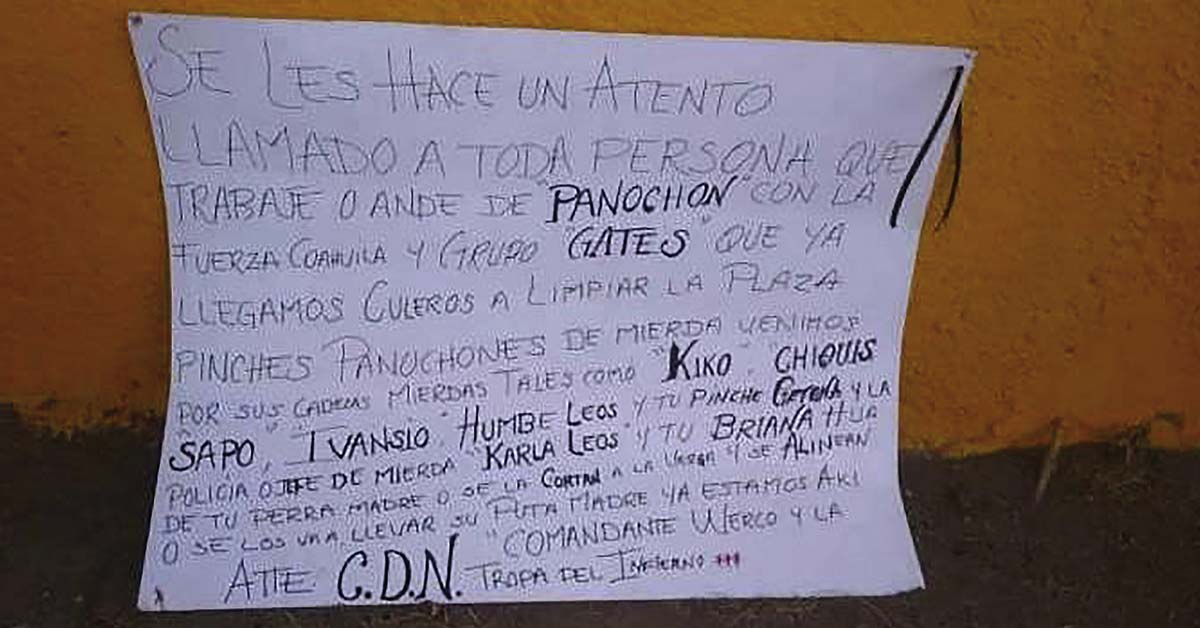 SE LES HACE UN ATENTO
LLAMADO A TODA PERSONA QUE
TRABAJE O ANDE DE "PANOCHON" CON LA
FUERZA COAHUILA Y GRUPO "GATES" QUE YA
LLEGAMOS CULEROS A LIMPIAR LA PLAZA
PINCHES PANOCHONES DE MIERDA VENIMOS
POR SUS CABEZAS MIERDAS TALES COMO "KIKO". CHIQUIS
SAPO", IVANSIO. "HUMBE LEOS Y TU PINCHE Y LA
POLICIA O JEFE DE MIERDA "KARLA LEOS" Y TU BRIANA HIJA
DE TU PERRA MADRE O SE LA CORTAN A LA VERGA Y SE ALINEAN
O SE LOS VA A LLEVAR SU PUTA MADRE YA ESTAMOS AKI
ATTE C.D.N. "COMANDANTE WERCO Y LA
TROPA DEL INFIERNO